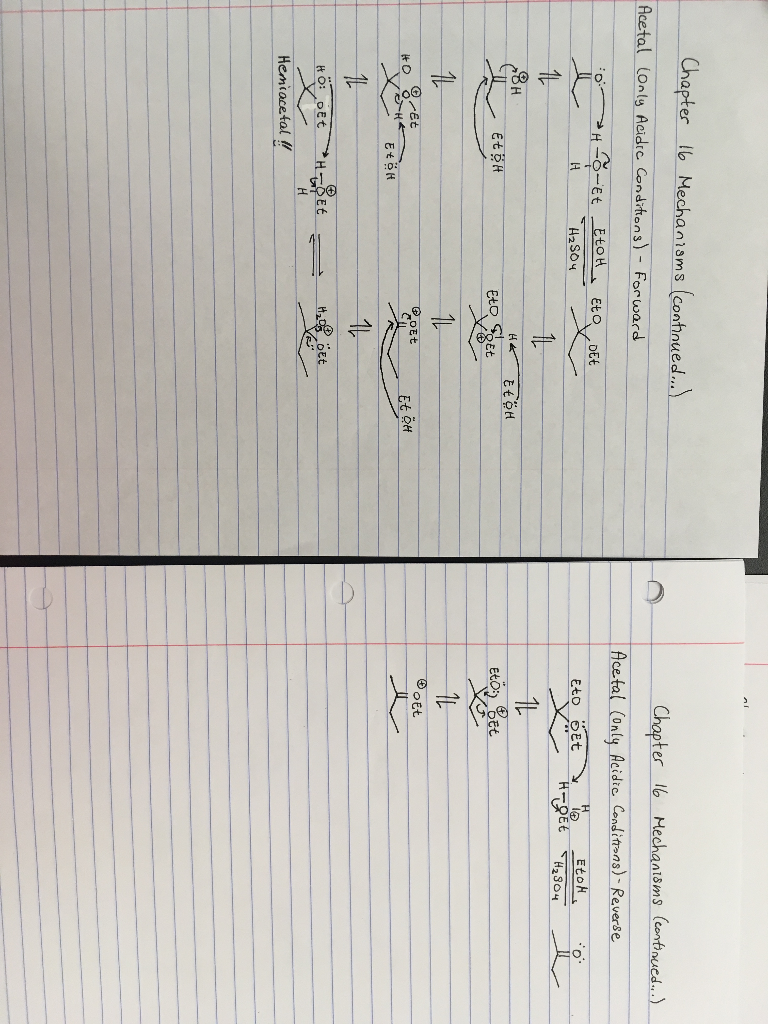 Chapter 16 Mechanisms (continued...)
Acetal (Only Acidic Conditions) - Forward
:O: H-O-Et EtOH EtO OEt
H H₂SO₄
⊕OH EtÖH
EtO ⊕OEt H EtÖH
HO ⊕O Et H EtÖH
⊕OEt EtÖH
HO: OEt H-⊕OEt H₂O⊕ ÖEt
H
Hemiacetal!!
Chapter 16 Mechanisms (continued...)
Acetal (Only Acidic Conditions) - Reverse
EtO ÖEt H-⊕OEt EtOH :O:
H H₂SO₄
EtÖ: ⊕OEt
⊕OEt